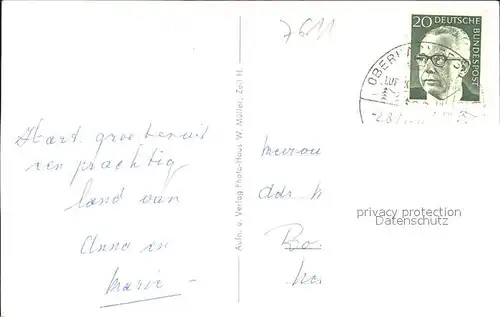 7611
20 DEUTSCHE
BUNDESPOST
LUF
-2.8.7
Hart. groeten uit
een prachtig
land van
Anna en
Marie -
Aufn. u. Verlag Photo-Haus W. Müller, Zell H.
Mevrou
Adr.
privacy protection
Datenschutz